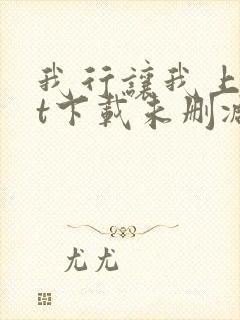 我行讓我上
t下載未刪減
尤尤